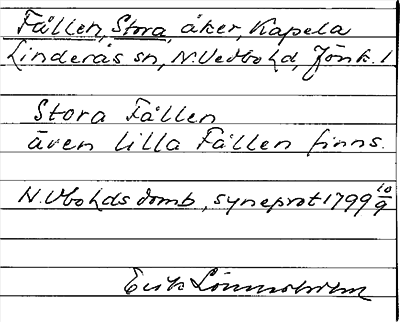 Fållen, Stora, åker, Kapela
Linderås sn, N. Vedbo hd, Jönk. l
Stora Fållen
även lilla Fållen finns.
N. Vbo hds domb, syneprot 1799 10/9
Erik Lönnerholm